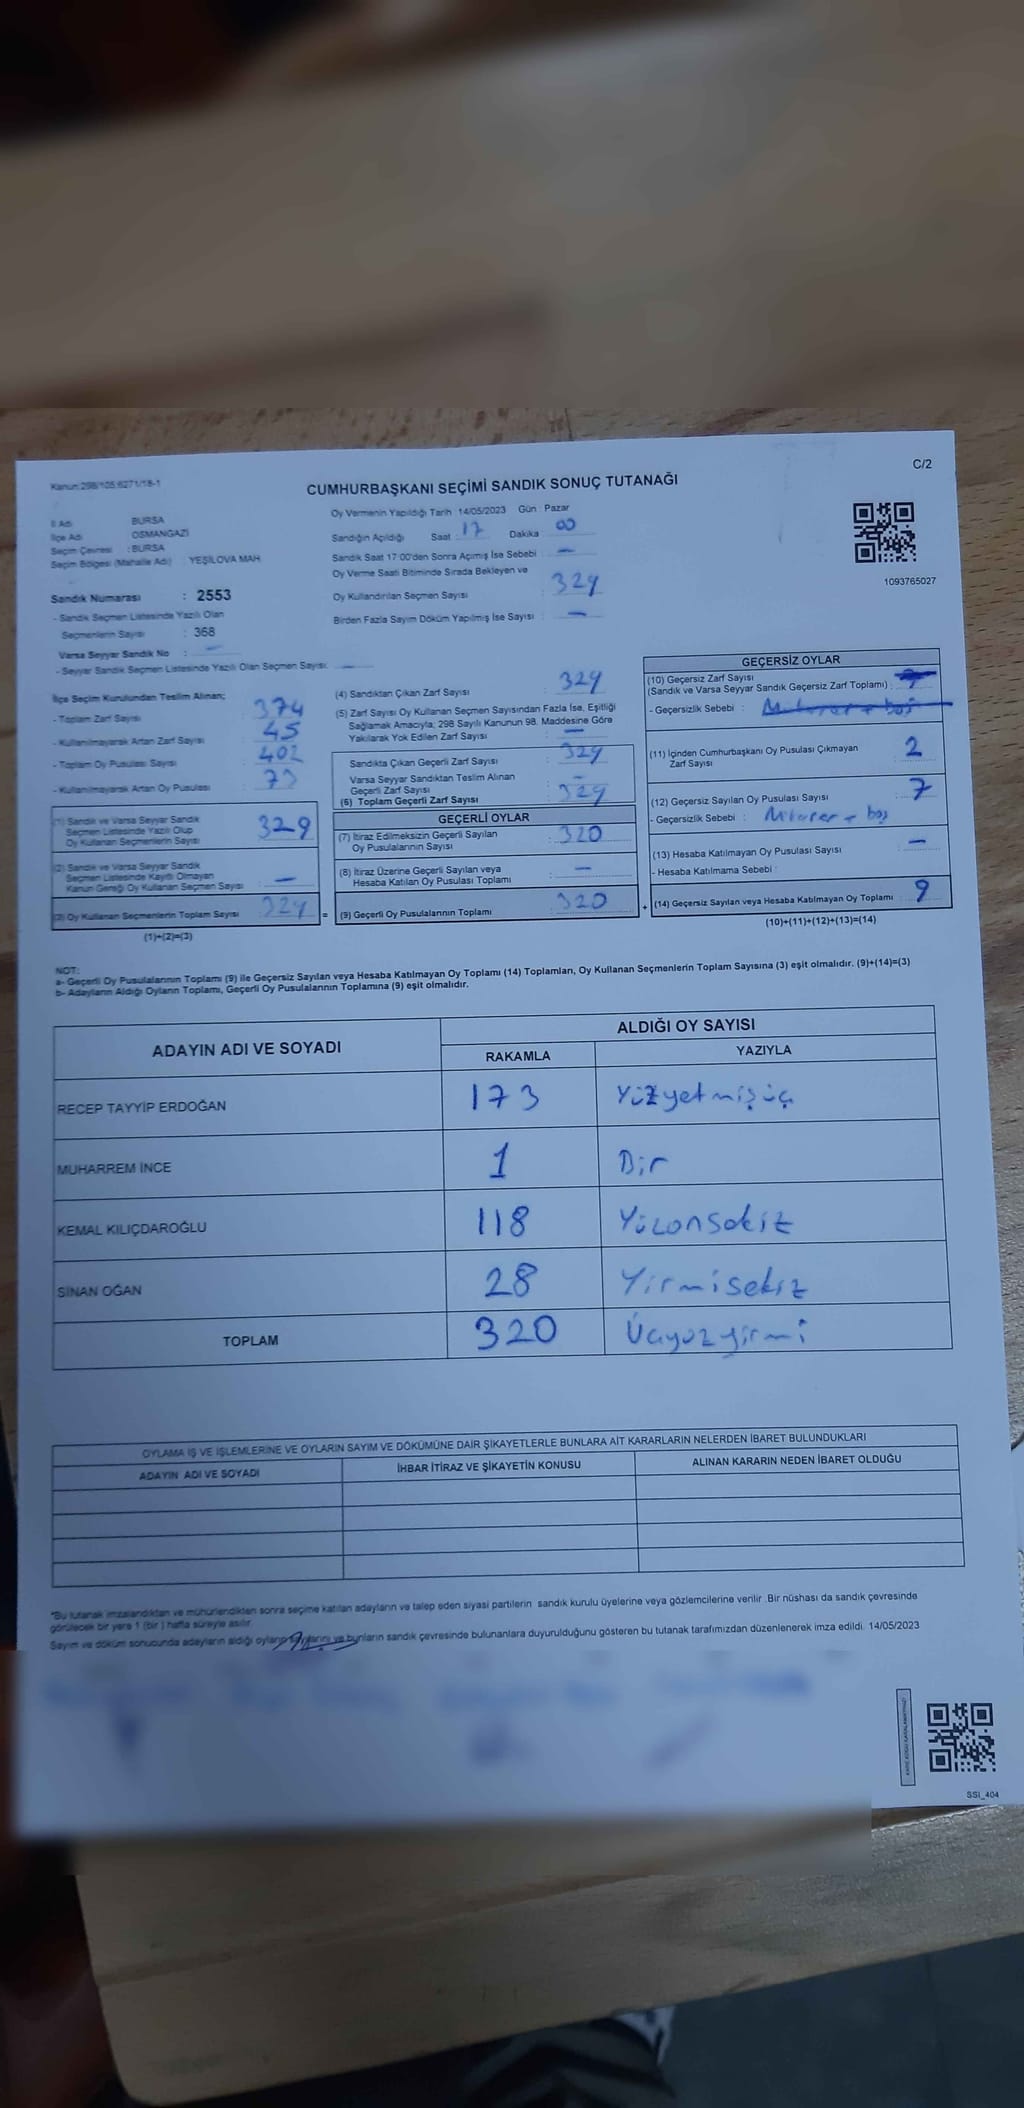 Kanun:298/105;6271/18-1
C/2
CUMHURBAŞKANI SEÇİMİ SANDIK SONUÇ TUTANAĞI
İl Adı BURSA
İlçe Adı OSMANGAZİ
Seçim Çevresi : BURSA
Seçim Bölgesi (Mahalle Adı) : YEŞİLOVA MAH.
Sandık Numarası : 2553
- Sandık Seçmen Listesinde Yazılı Olan
Seçmenlerin Sayısı : 368
Varsa Seyyar Sandık No : —
- Seyyar Sandık Seçmen Listesinde Yazılı Olan Seçmen Sayısı: —
Oy Vermenin Yapıldığı Tarih 14/05/2023 Gün Pazar
Sandığın Açıldığı Saat 17 Dakika 00
Sandık Saat 17:00'den Sonra Açılmış İse Sebebi —
Oy Verme Saati Bitiminde Sırada Bekleyen ve
Oy Kullandırılan Seçmen Sayısı : 329
Birden Fazla Sayım Döküm Yapılmış İse Sayısı : —
1093765027
İlçe Seçim Kurulundan Teslim Alınan;
- Toplam Zarf Sayısı : 374
- Kullanılmayarak Artan Zarf Sayısı : 45
- Toplam Oy Pusulası Sayısı : 402
- Kullanılmayarak Artan Oy Pusulası : 73
(1) Sandık ve Varsa Seyyar Sandık
Seçmen Listesinde Yazılı Olup
Oy Kullanan Seçmenlerin Sayısı 329
(2) Sandık ve Varsa Seyyar Sandık
Seçmen Listesinde Kayıtlı Olmayan
Kanun Gereği Oy Kullanan Seçmen Sayısı : —
(3) Oy Kullanan Seçmenlerin Toplam Sayısı : 329 =
(1)+(2)=(3)
(4) Sandıktan Çıkan Zarf Sayısı : 329
(5) Zarf Sayısı Oy Kullanan Seçmen Sayısından Fazla İse, Eşitliği
Sağlamak Amacıyla, 298 Sayılı Kanunun 98. Maddesine Göre
Yakılarak Yok Edilen Zarf Sayısı : —
Sandıkta Çıkan Geçerli Zarf Sayısı : 329
Varsa Seyyar Sandıktan Teslim Alınan
Geçerli Zarf Sayısı : —
(6) Toplam Geçerli Zarf Sayısı : 329
GEÇERLİ OYLAR
(7) İtiraz Edilmeksizin Geçerli Sayılan
Oy Pusulalarının Sayısı : 320
(8) İtiraz Üzerine Geçerli Sayılan veya
Hesaba Katılan Oy Pusulası Toplamı : —
(9) Geçerli Oy Pusulalarının Toplamı : 320 +
GEÇERSİZ OYLAR
(10) Geçersiz Zarf Sayısı
(Sandık ve Varsa Seyyar Sandık Geçersiz Zarf Toplamı) :
- Geçersizlik Sebebi :
(11) İçinden Cumhurbaşkanı Oy Pusulası Çıkmayan
Zarf Sayısı : 2
(12) Geçersiz Sayılan Oy Pusulası Sayısı : 7
- Geçersizlik Sebebi : + boş
(13) Hesaba Katılmayan Oy Pusulası Sayısı : —
- Hesaba Katılmama Sebebi :
(14) Geçersiz Sayılan veya Hesaba Katılmayan Oy Toplamı : 9
(10)+(11)+(12)+(13)=(14)
NOT:
a- Geçerli Oy Pusulalarının Toplamı (9) ile Geçersiz Sayılan veya Hesaba Katılmayan Oy Toplamı (14) Toplamları, Oy Kullanan Seçmenlerin Toplam Sayısına (3) eşit olmalıdır. (9)+(14)=(3)
b- Adayların Aldığı Oyların Toplamı, Geçerli Oy Pusulalarının Toplamına (9) eşit olmalıdır.
ADAYIN ADI VE SOYADI ALDIĞI OY SAYISI
RAKAMLA YAZIYLA
RECEP TAYYİP ERDOĞAN 173 Yüzyetmişüç
MUHARREM İNCE 1 Bir
KEMAL KILIÇDAROĞLU 118 Yüzonsekiz
SİNAN OĞAN 28 Yirmisekiz
TOPLAM 320 Üçyüzyirmi
OYLAMA İŞ VE İŞLEMLERİNE VE OYLARIN SAYIM VE DÖKÜMÜNE DAİR ŞİKAYETLERLE BUNLARA AİT KARARLARIN NELERDEN İBARET BULUNDUKLARI
ADAYIN ADI VE SOYADI İHBAR İTİRAZ VE ŞİKAYETİN KONUSU ALINAN KARARIN NEDEN İBARET OLDUĞU
*Bu tutanak imzalandıktan ve mühürlendikten sonra seçime katılan adayların ve talep eden siyasi partilerin sandık kurulu üyelerine veya gözlemcilerine verilir. Bir nüshası da sandık çevresinde
görülecek bir yere 1 (bir) hafta süreyle asılır.
Sayım ve döküm sonucunda adayların aldığı oyların sayılarını ve bunların sandık çevresinde bulunanlara duyurulduğunu gösteren bu tutanak tarafımızdan düzenlenerek imza edildi. 14/05/2023
SSI_404